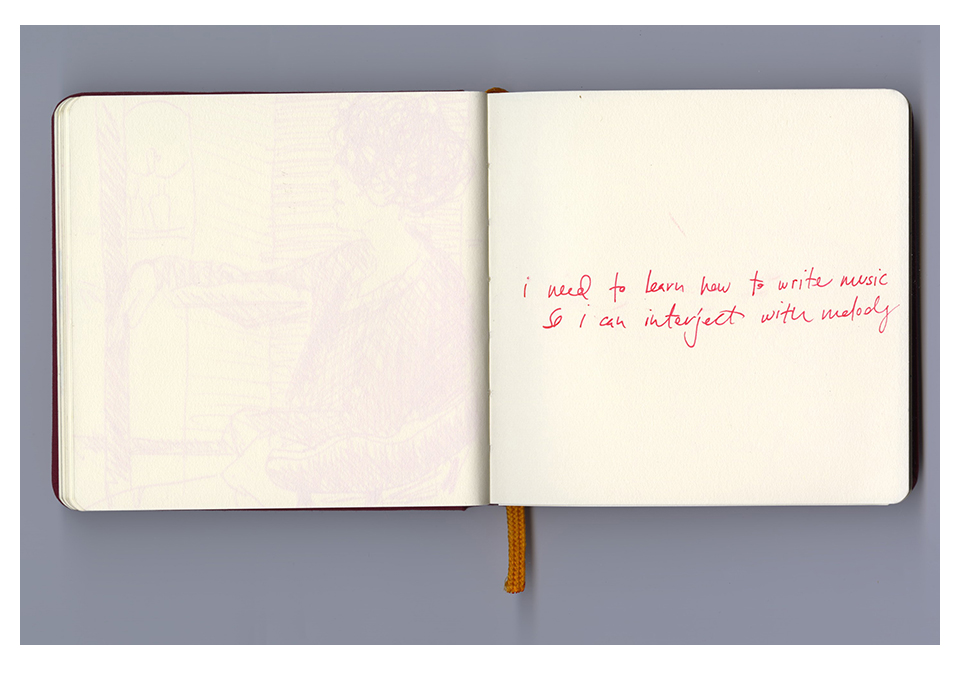 i need to learn how to write music
so i can interject with melody